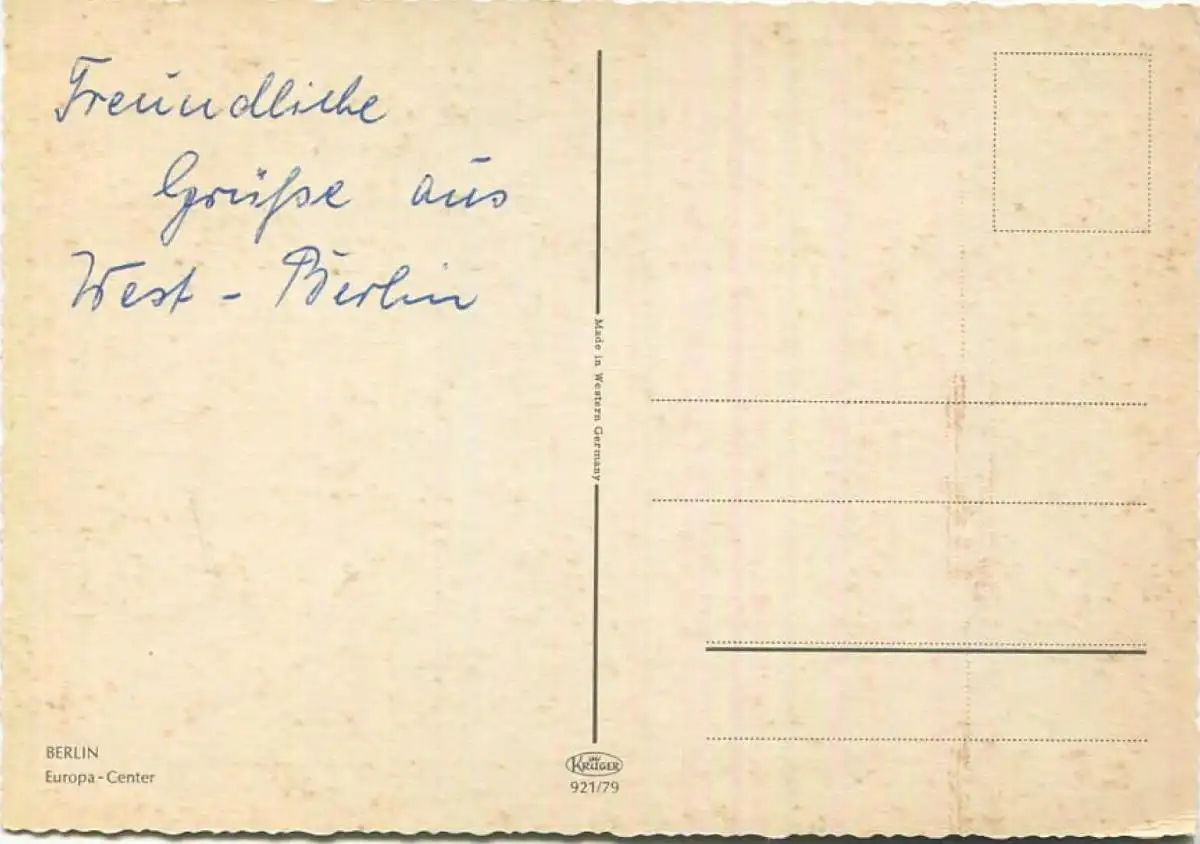 Freundliche
Grüße aus
West - Berlin
Made in Western Germany
BERLIN
Europa - Center
KRÜGER
921/79